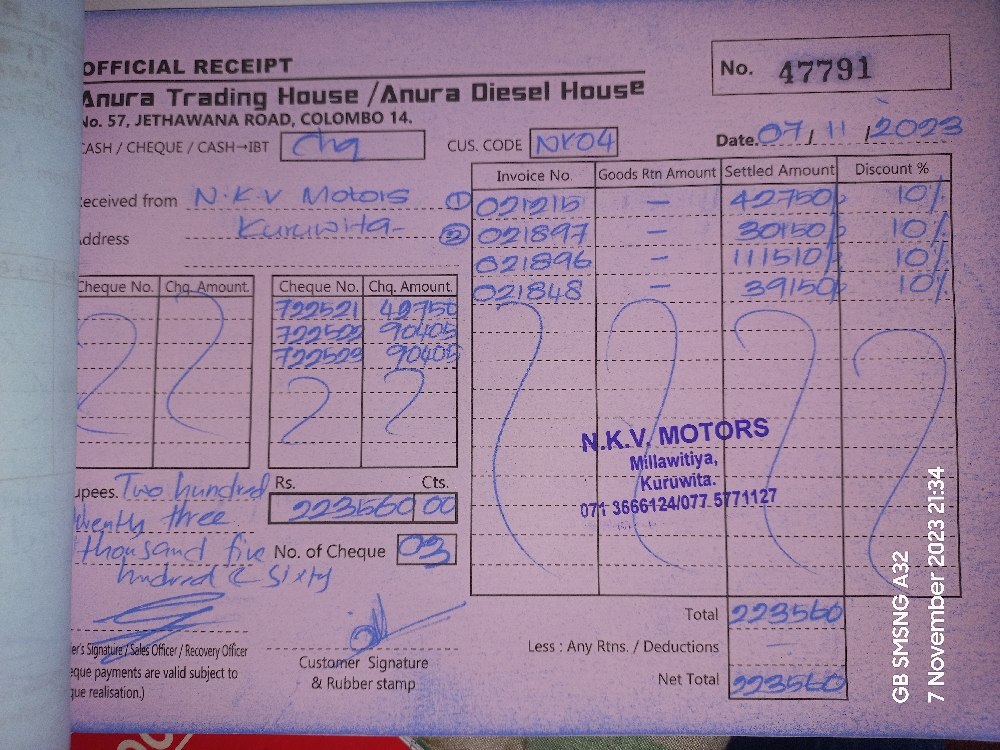 OFFICIAL RECEIPT
No. 47791
Anura Trading House /Anura Diesel House
No. 57, JETHAWANA ROAD, COLOMBO 14.
CASH / CHEQUE / CASH→IBT Chq CUS. CODE NK04 Date. 07 / 11 / 2023
Received from N.K.V Motors
Address Kuruwita
Invoice No. Goods Rtn Amount Settled Amount Discount %
① 021215 — 42750/ 10%
② 021897 — 30150/ 10%
021896 — 111510/ 10%
021848 — 39150/ 10%
Cheque No. Chq. Amount. Cheque No. Chq. Amount.
722521 42750
722522 90405
722523 90405
N.K.V. MOTORS
Millawitiya,
Kuruwita.
071 3666124/077 5771127
upees. Two hundred
twenty three
thousand five
hundred & sixty
Rs. Cts.
223560 00
No. of Cheque 03
Total 223560
Less : Any Rtns. / Deductions —
Net Total 223560
er's Signature / Sales Officer / Recovery Officer
eque payments are valid subject to
que realisation.)
Customer Signature
& Rubber stamp
GB SMSNG A32
7 November 2023 21:34